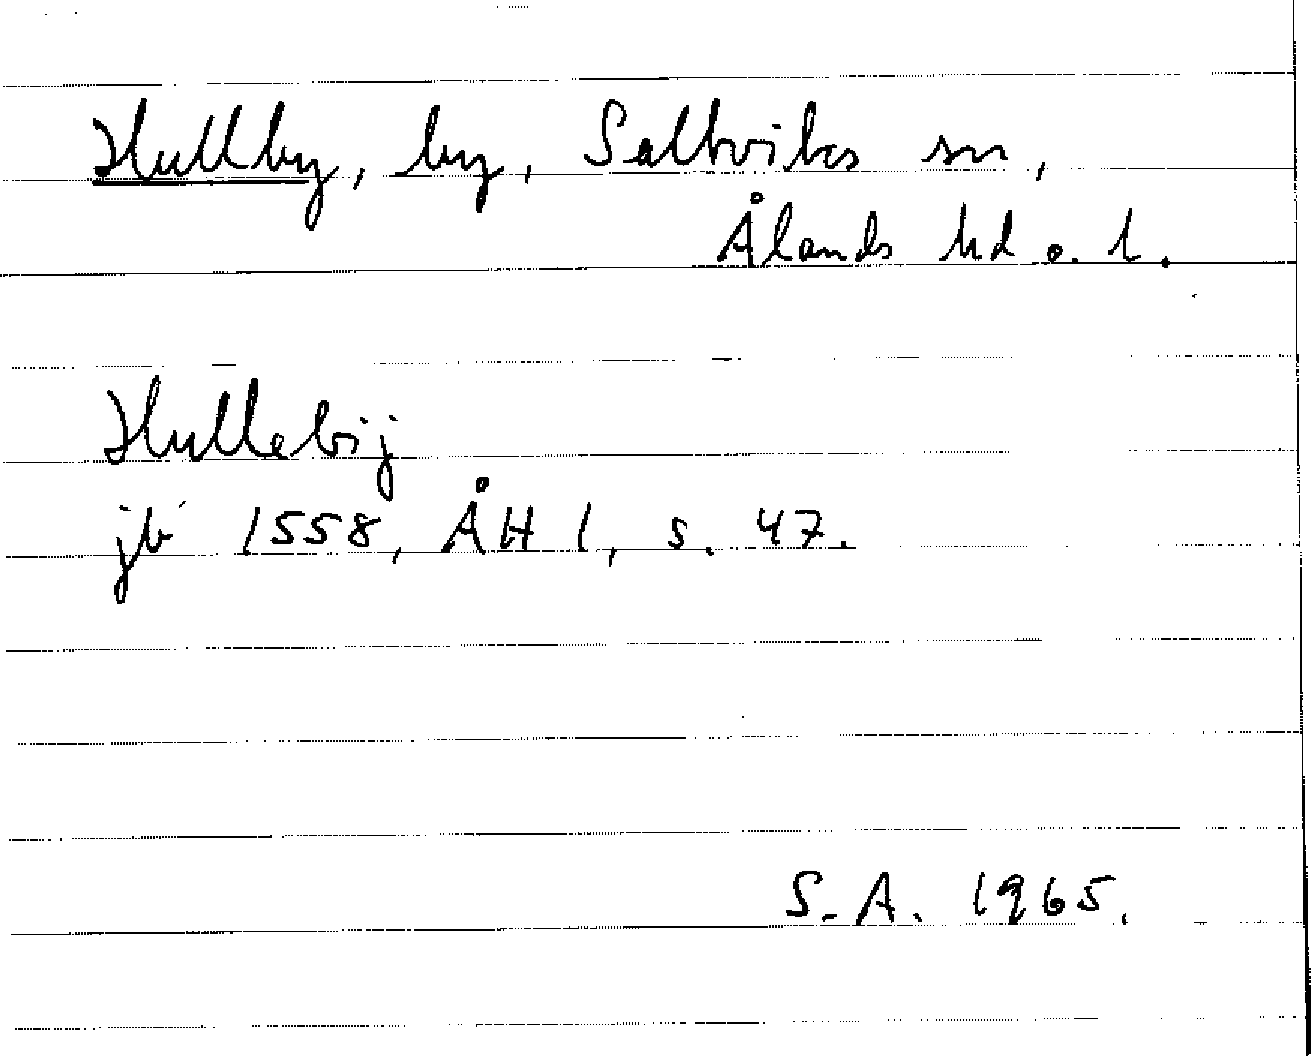 Hullby, by, Saltviks sn,
Ålands hd o. l.
Hullebij
jb 1558, ÅH 1, s. 47.
S. A. 1965.